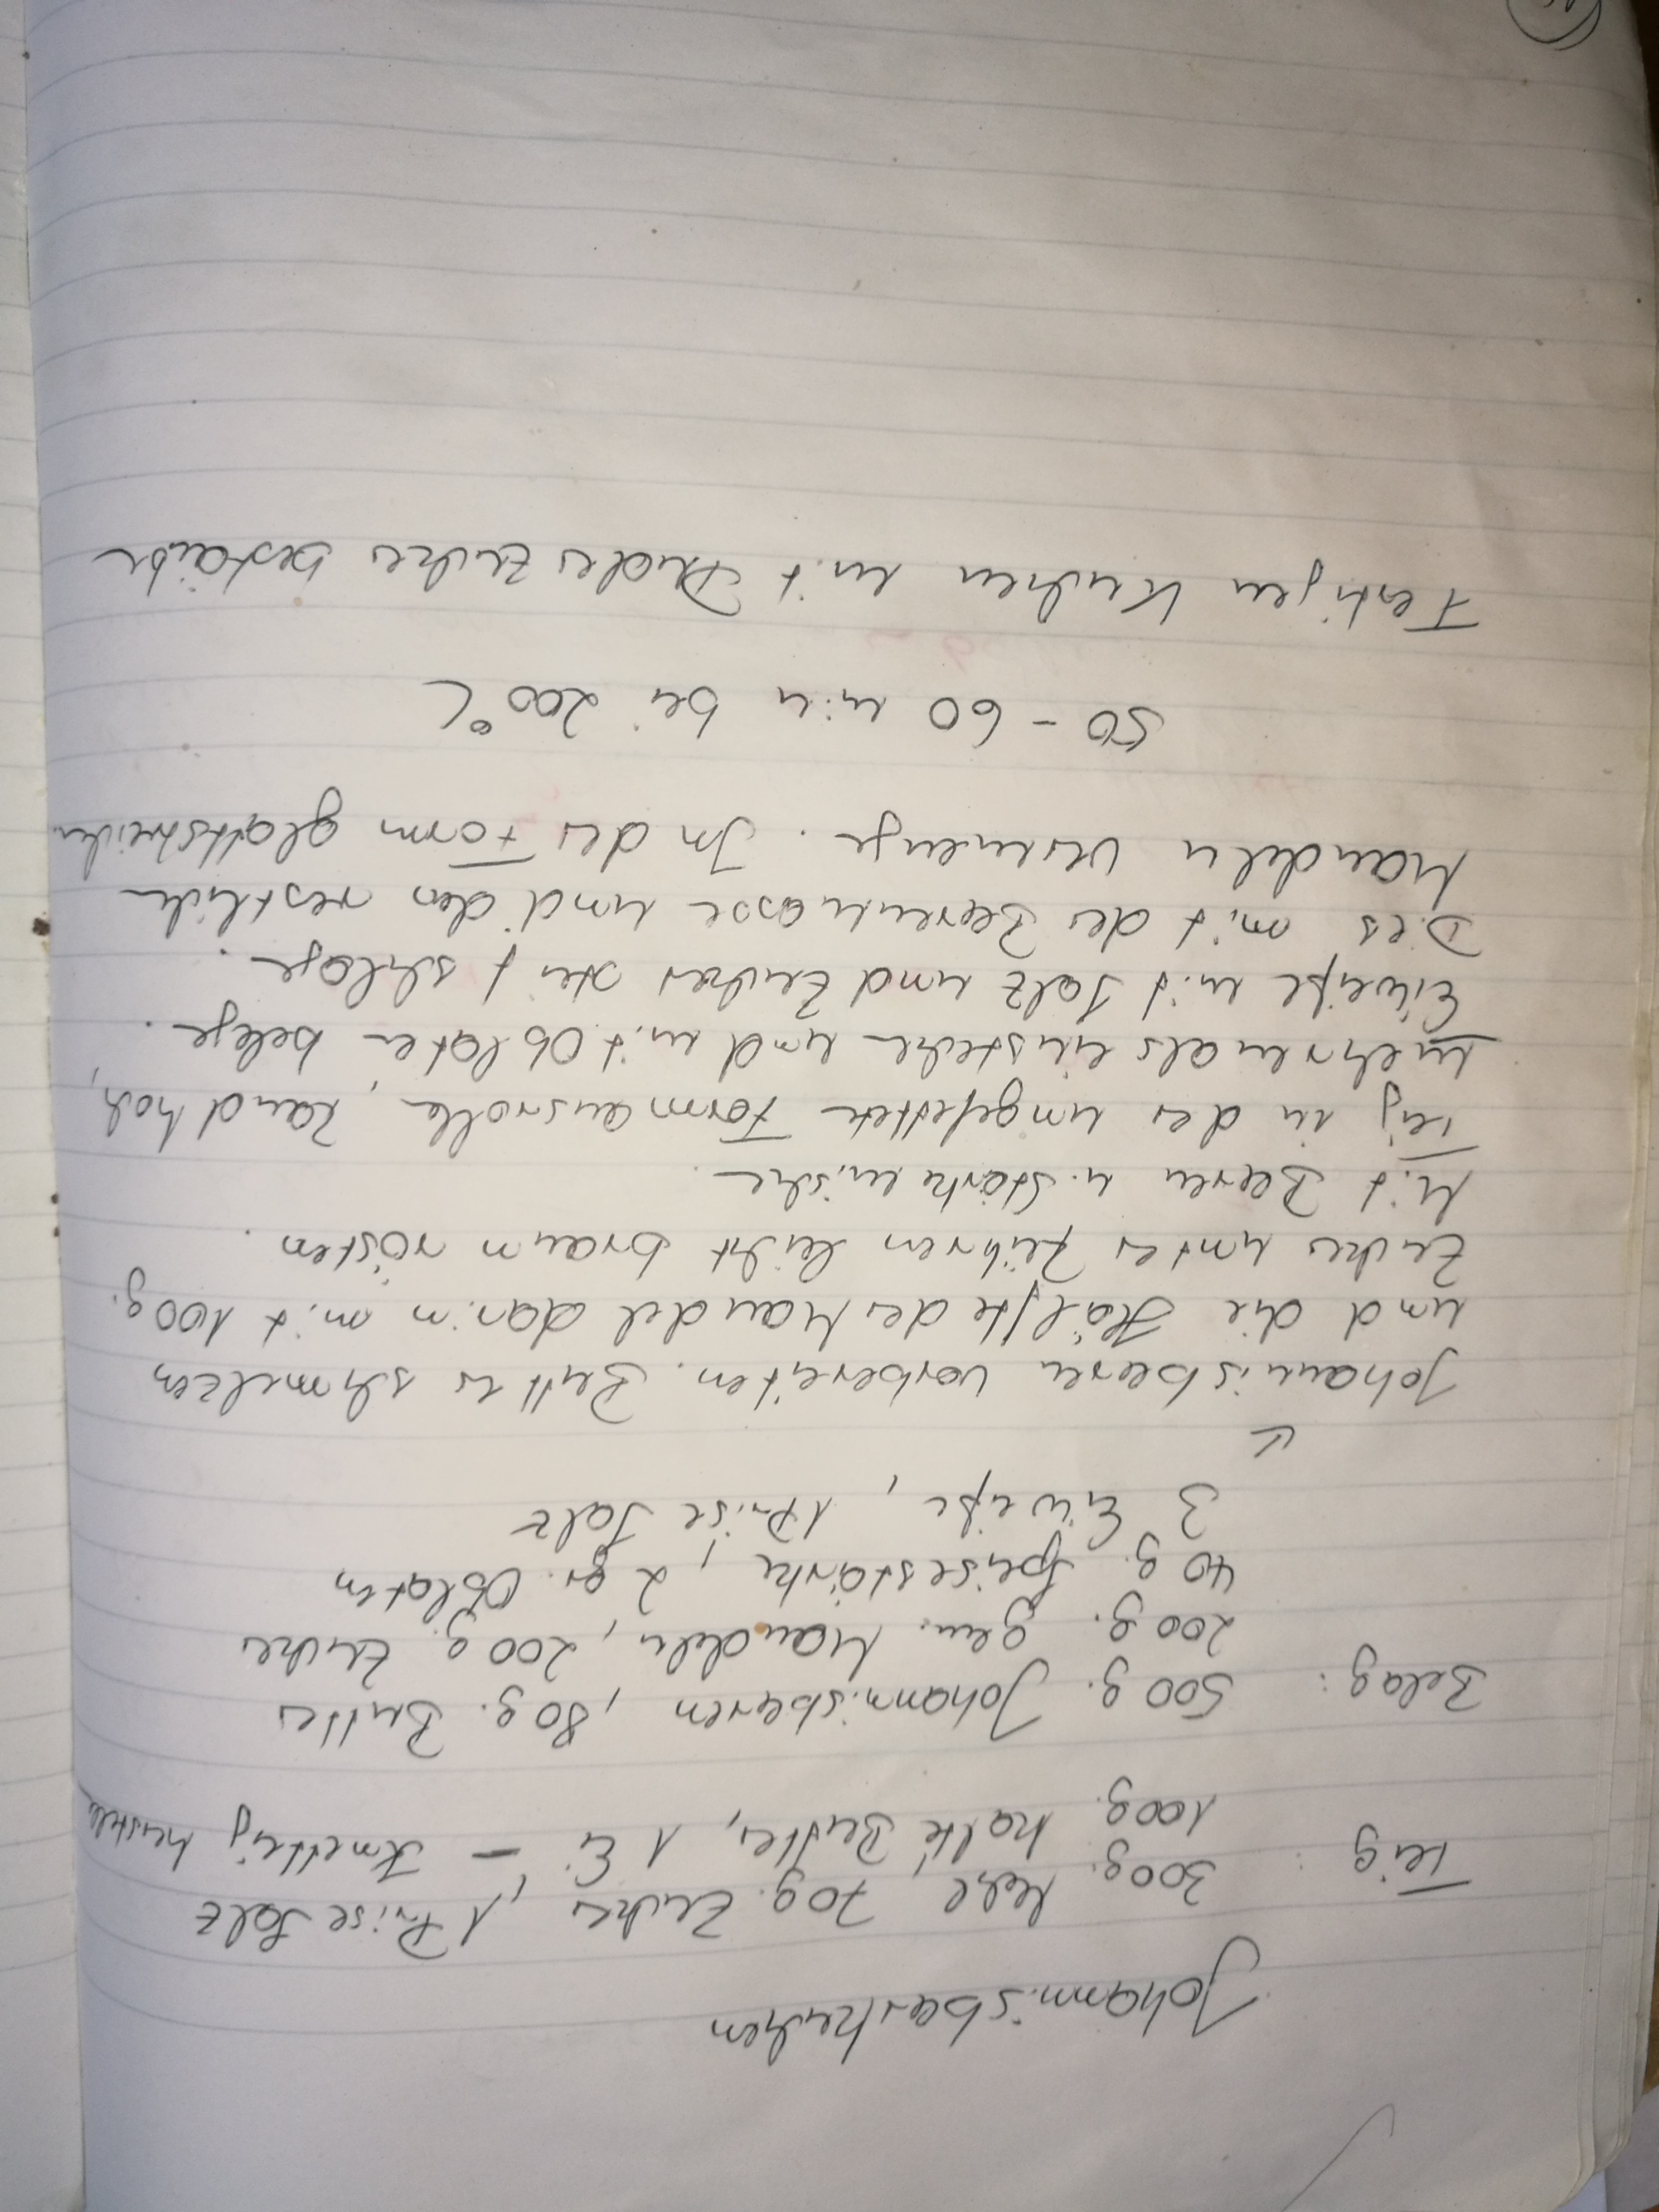 Johannisbeerkuchen
Teig : 300g. Mehl, 70g. Zucker, 1 Prise Salz
100g. kalte Butter, 1 Ei - Knetteig herstellen
Belag: 500 g. Johannisbeeren, 80 g. Butter
200 g. gem. Mandeln, 200 g. Zucker
40 g. Speisestärke, 2 gr. Oblaten
3 Eiweiße, 1 Prise Salz
Johannisbeeren vorbereiten. Butter schmelzen
und die Hälfte der Mandel darin mit 100 g.
Zucker unter Rühren leicht braun rösten.
Mit Beeren u. Stärke mischen.
Teig in der ungefetteten Form ausrollen, Rand hoch,
mehrmals einstechen und mit Oblaten belegen.
Eiweiße mit Salz und Zucker steif schlagen.
Dies mit der Beerenmasse und den restlichen
Mandeln vermengen. In der Form glattstreichen.
50 - 60 min bei 200°C
Fertigen Kuchen mit Puderzucker bestäuben